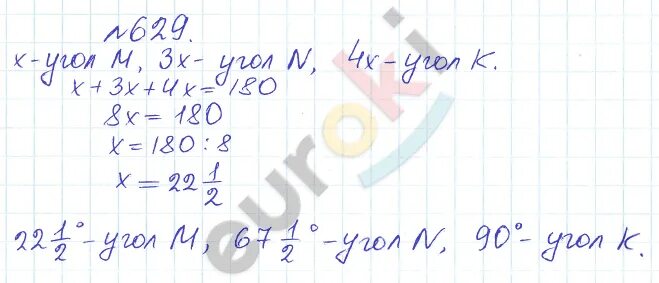 №629.
x-угол M, 3x- угол N, 4x-угол K.
x+3x+4x=180
8x=180
x=180:8
x=22 1/2
22 1/2°-угол M, 67 1/2°-угол N, 90°-угол K.
euroki